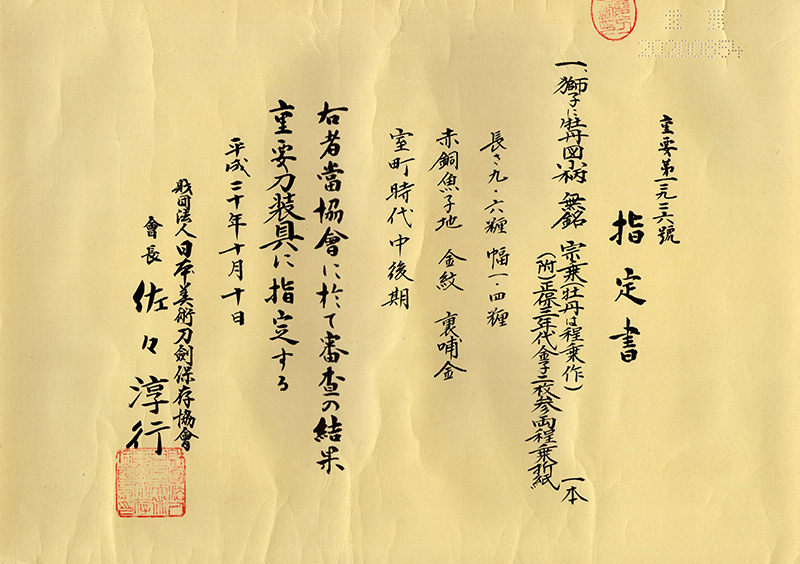 重要第一三九三六號
指定書
一、獅子に牡丹図小柄 無銘 宗乗(牡丹は程乗作)
(附)正保三年代金子二枚参両程乗折紙
一本
長さ九・六糎 幅一・四糎
赤銅魚子地 金紋 裏哺金
室町時代中後期
右者當協會に於て審査の結果
重要刀装具に指定する
平成二十年十月十日
財団法人日本美術刀劍保存協會
會長 佐々淳行